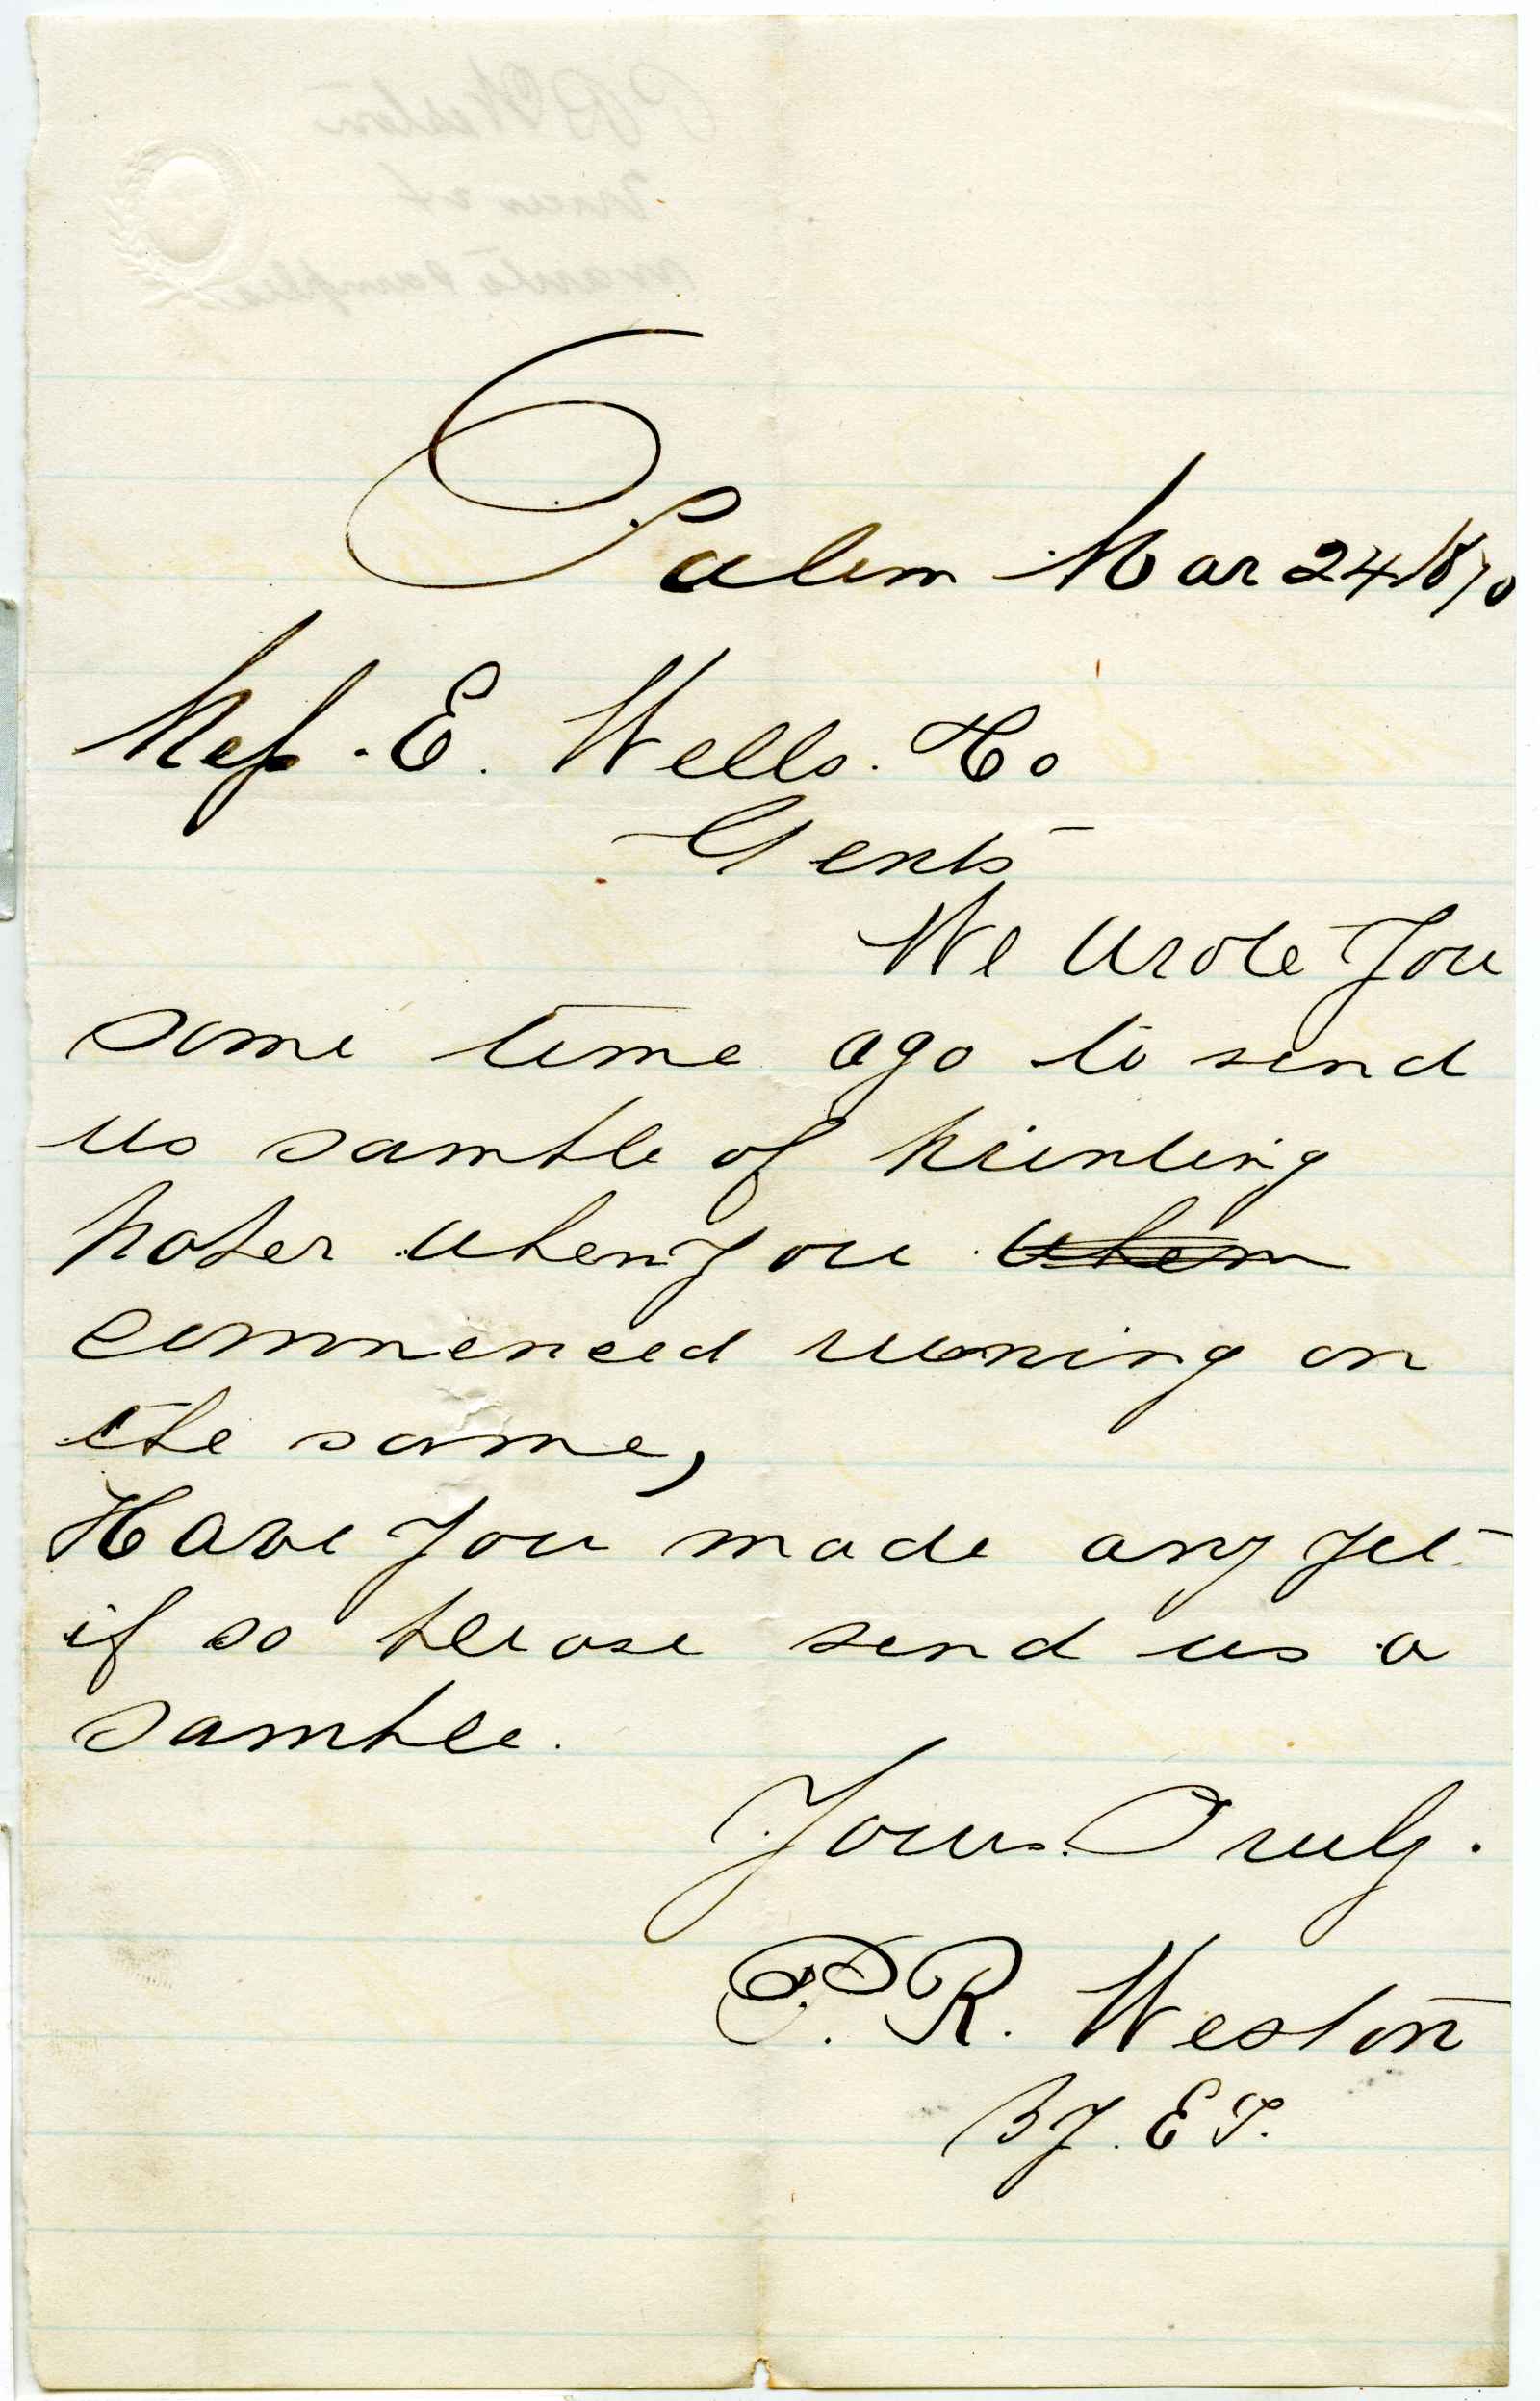 Salem Mar 24 1870
Mess. E. Wells. Co
Gents
We wrote you
some time ago to send
us sample of printing
paper when you when
commenced runing on
the same,
Have you made any yet
if so please send us a
sample.
Yours Truly.
P. R. Weston
By. E T.